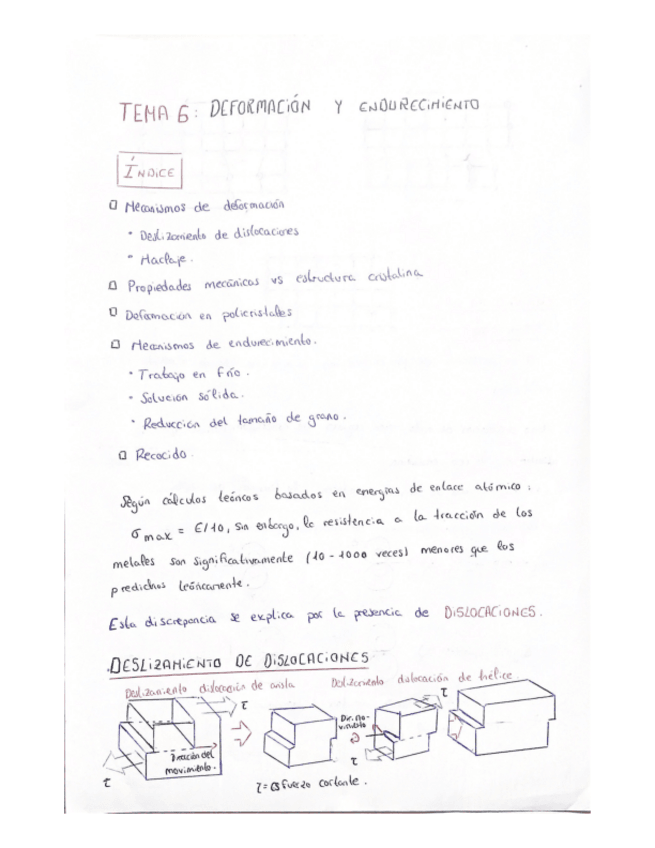 TEMA 6: DEFORMACIÓN Y ENDURECIMIENTO
ÍNDICE
Mecanismos de deformación
• Deslizamiento de dislocaciones
• Maclaje.
Propiedades mecánicas vs estructura cristalina
Deformación en policristales
Mecanismos de endurecimiento.
• Trabajo en frío.
• Solución sólida.
• Reducción del tamaño de grano.
Recocido.
Según cálculos teóricos basados en energías de enlace atómico:
σmax = E/10, sin embargo, la resistencia a la tracción de los
metales son significativamente (10 - 1000 veces) menores que los
predichos teóricamente.
Esta discrepancia se explica por la presencia de DISLOCACIONES.
DESLIZAMIENTO DE DISLOCACIONES
Deslizamiento dislocación de arista
Deslizamiento dislocación de hélice
τ
τ
Dir. mo-
vimiento
Dirección del
movimiento.
τ
τ
τ = esfuerzo cortante.